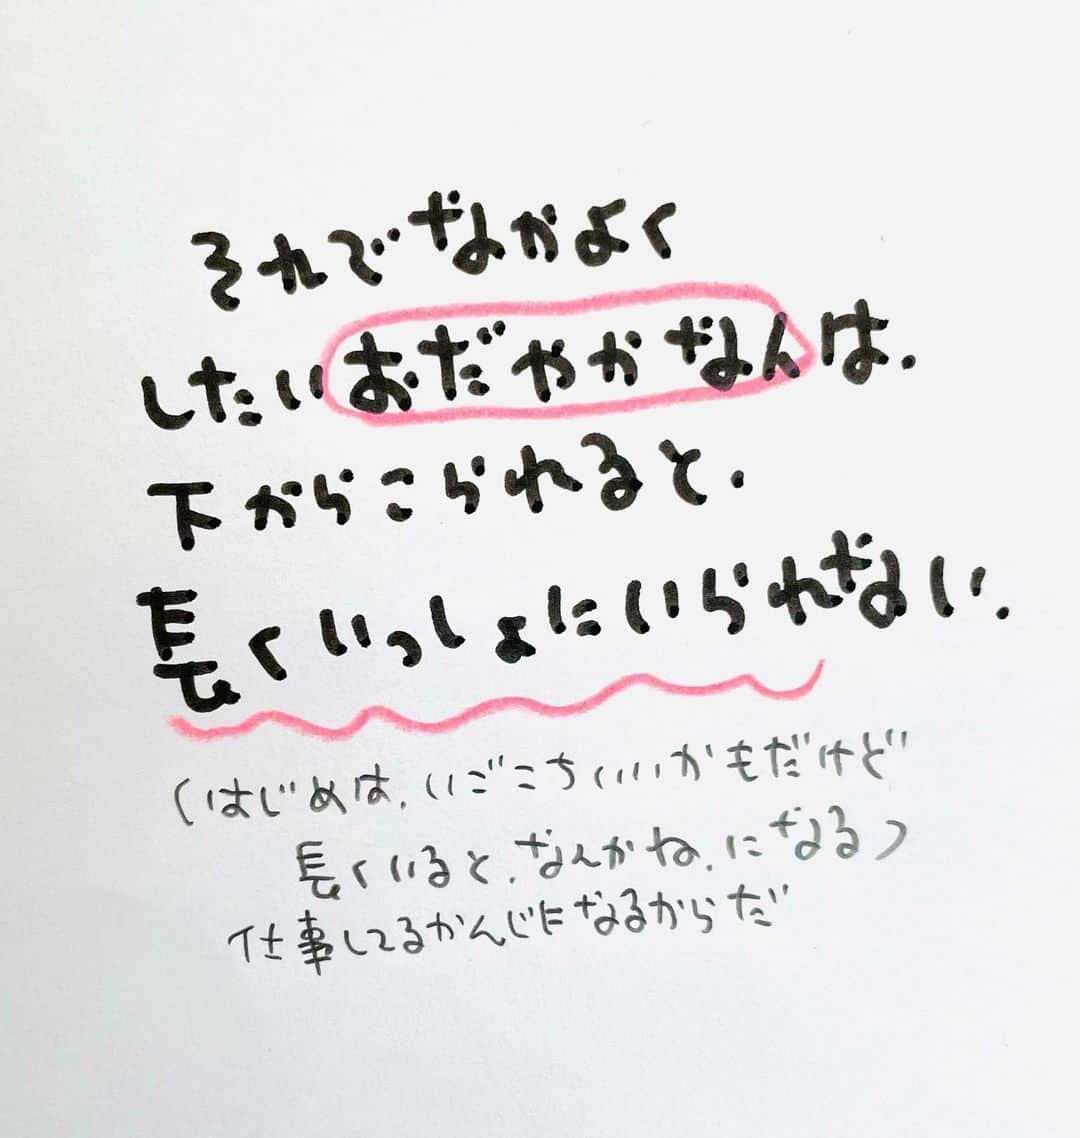 それでなかよく
したいおだやかなんは、
下からこられると、
長くいっしょにいられない、
(はじめは、いごこちいいかもだけど
長くいると、なんかね、になる)
仕事してるかんじになるからだ